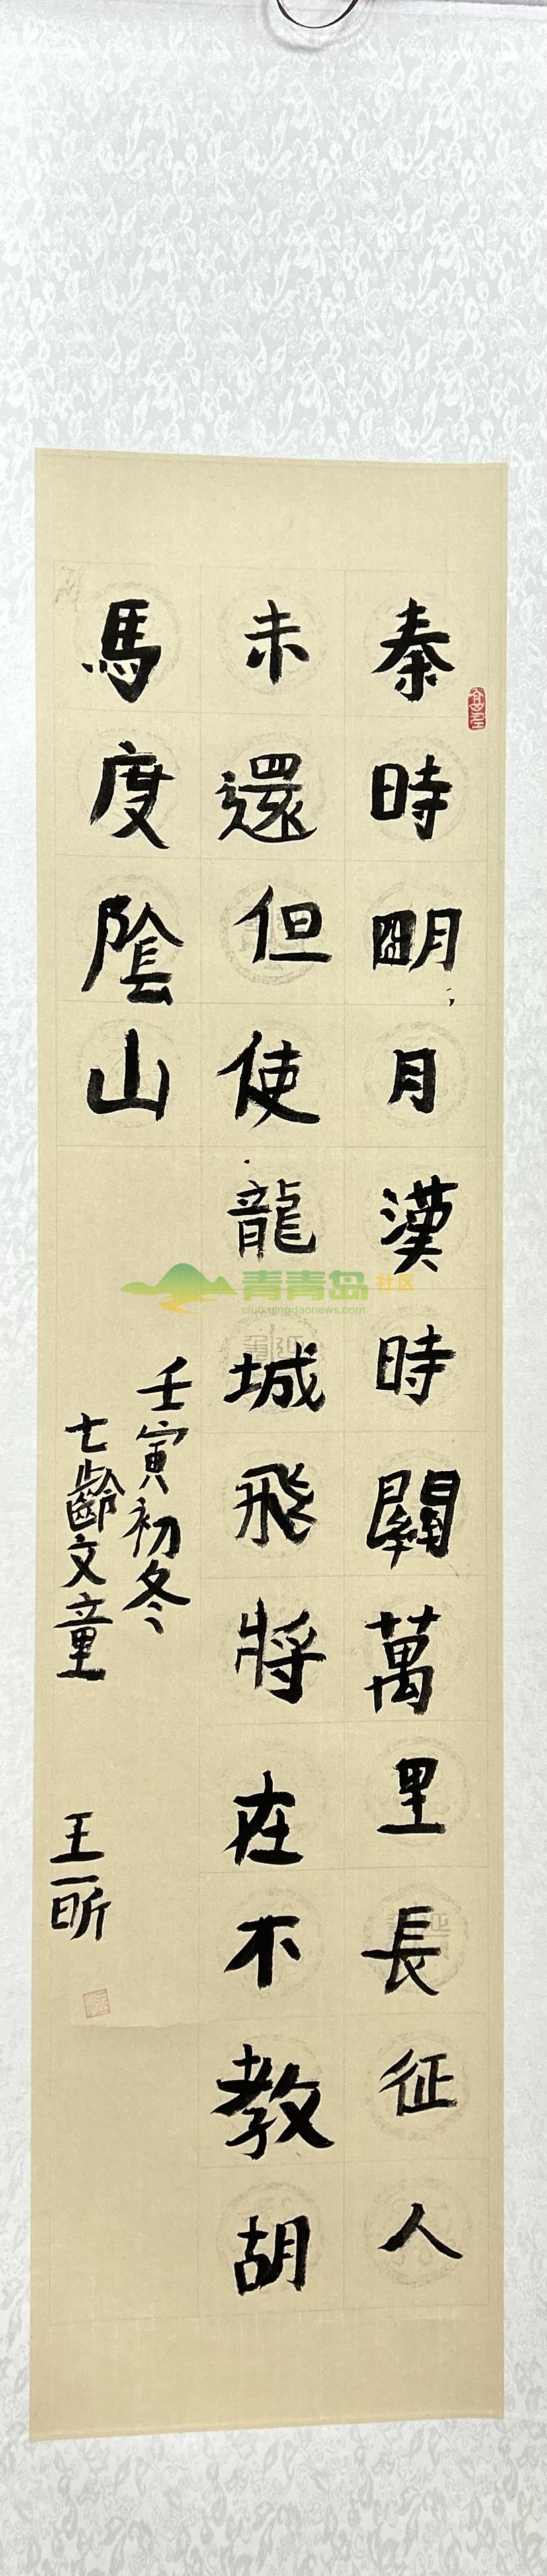 秦時明月漢時關萬里長征人
未還但使龍城飛將在不教胡
馬度陰山
壬寅初冬
七齡文童
王一昕
青青岛社区
club.qingdaonews.com